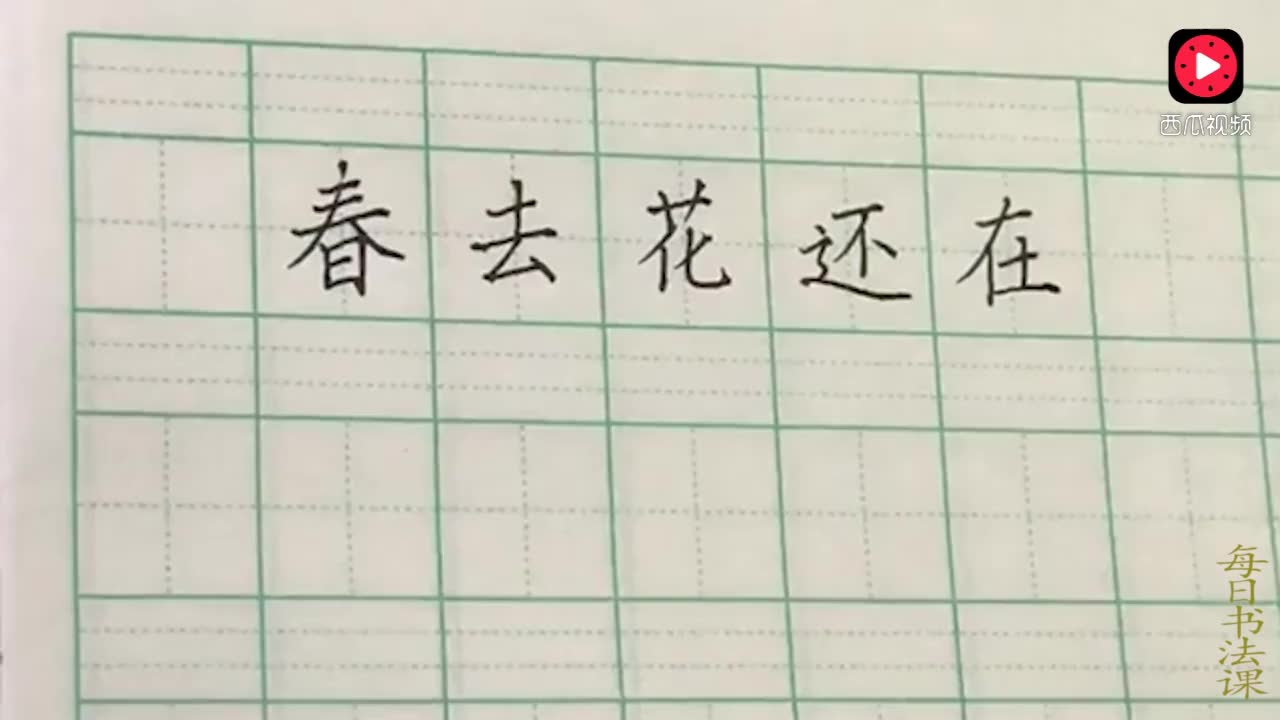 西瓜视频
春去花还在
每日书法课